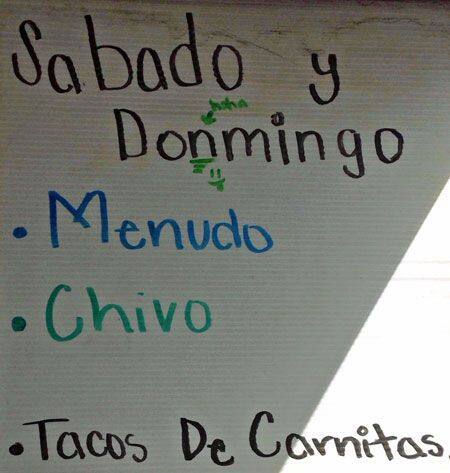 Sabado y
haha
Donmingo
• Menudo
• Chivo
• Tacos De Carnitas